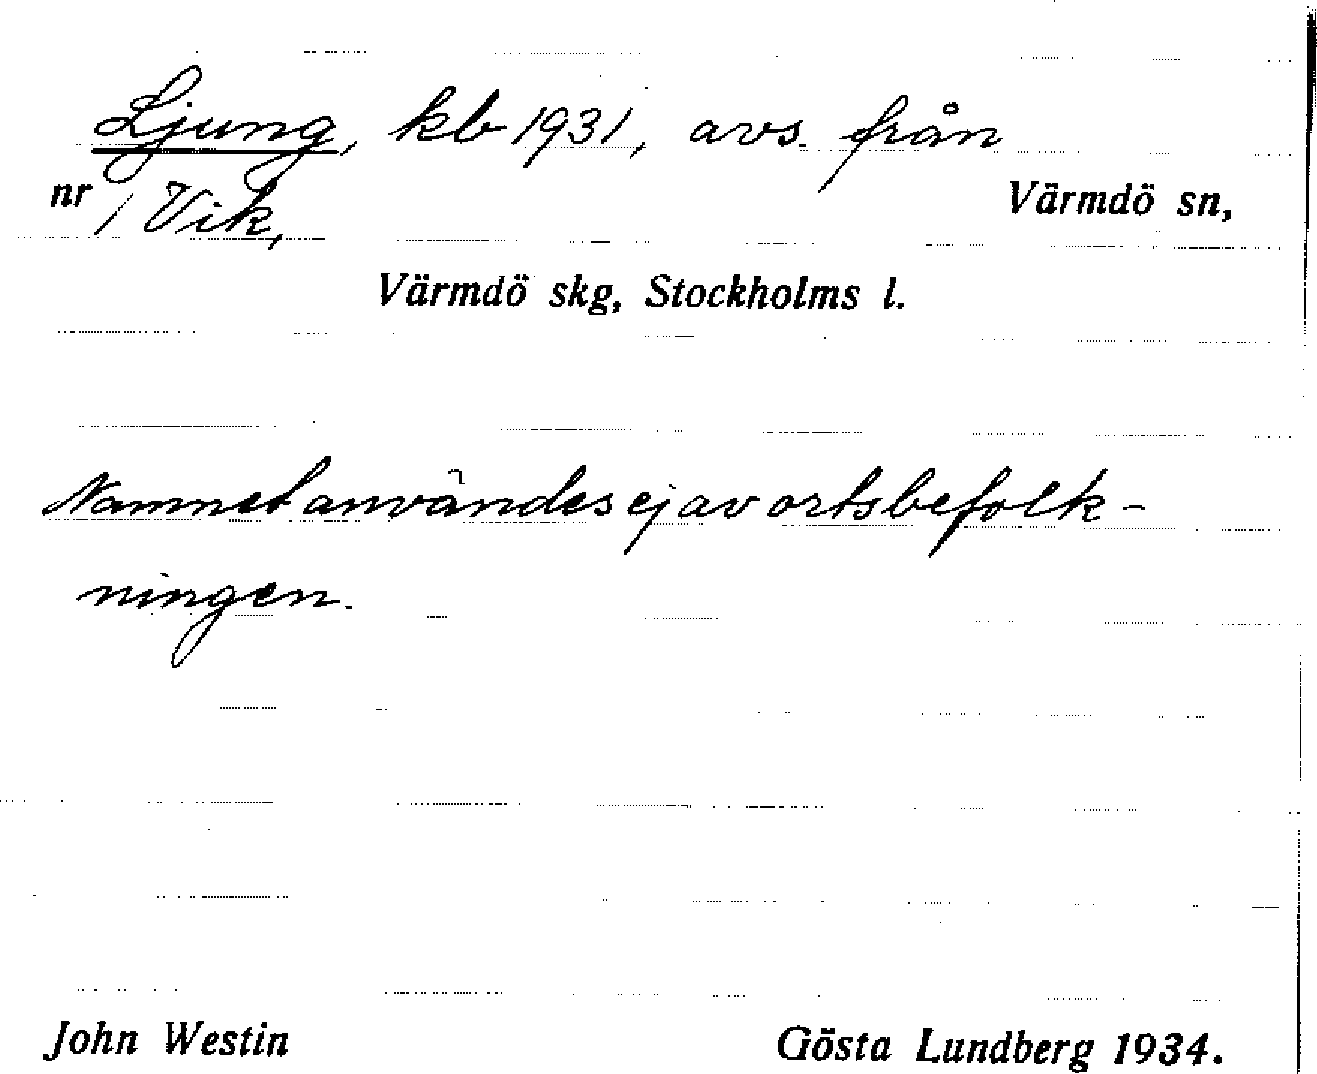 Ljung, kb 1931, avs. från
nr 1 Vik, Värmdö sn,
Värmdö skg, Stockholms l.
Namnet användes ej av ortsbefolk-
ningen.
John Westin Gösta Lundberg 1934.